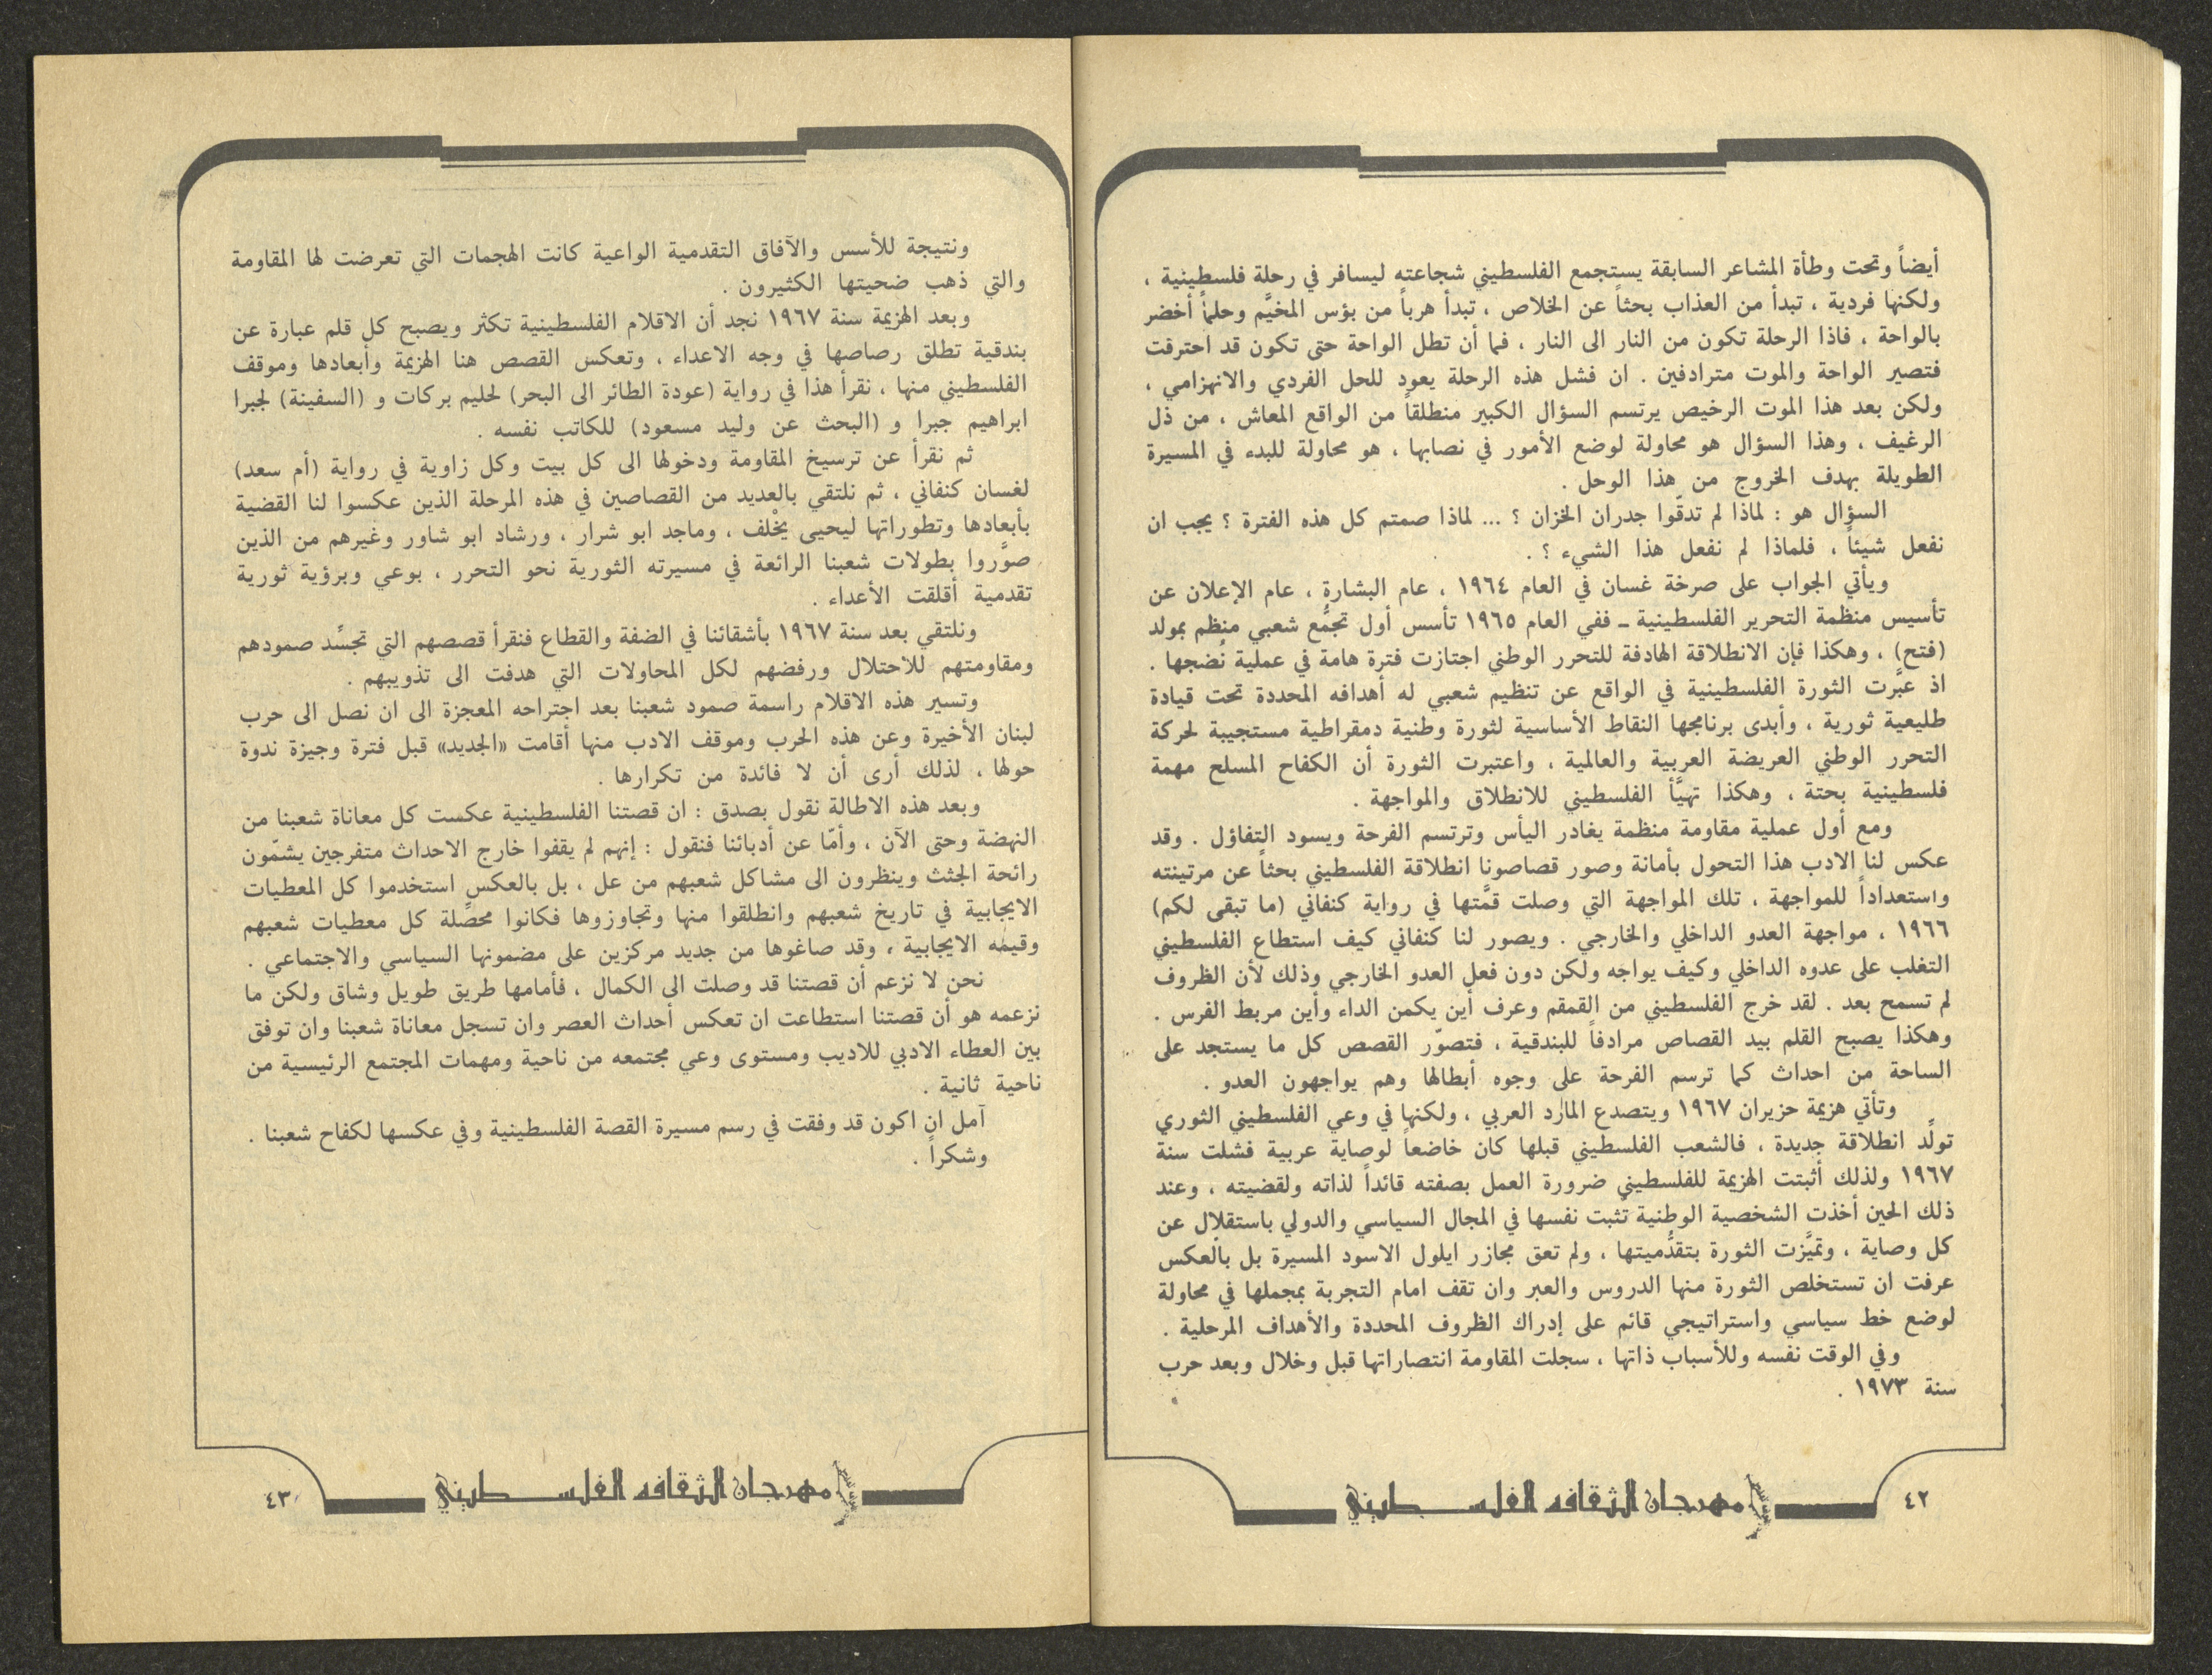 أيضاً وتحت وطأة المشاعر السابقة يستجمع الفلسطيني شجاعته ليسافر في رحلة فلسطينية ،
ولكنها فردية ، تبدأ من العذاب بحثاً عن الخلاص ، تبدأ هرباً من بؤس المخيَّم وحلماً أخضر
بالواحة ، فاذا الرحلة تكون من النار الى النار ، فما أن تطل الواحة حتى تكون قد احترقت
فتصير الواحة والموت مترادفين . ان فشل هذه الرحلة يعود للحل الفردي والانهزامي ،
ولكن بعد هذا الموت الرخيص يرتسم السؤال الكبير منطلقاً من الواقع المعاش ، من ذل
الرغيف ، وهذا السؤال هو محاولة لوضع الأمور في نصابها ، هو محاولة للبدء في المسيرة
الطويلة بهدف الخروج من هذا الوحل .
السؤال هو : لماذا لم تدقّوا جدران الخزان ؟ ... لماذا صمتم كل هذه الفترة ؟ يجب ان
نفعل شيئاً ، فلماذا لم نفعل هذا الشيء ؟ .
ويأتي الجواب على صرخة غسان في العام ١٩٦٤ ، عام البشارة ، عام الإعلان عن
تأسيس منظمة التحرير الفلسطينية ـ ففي العام ١٩٦٥ تأسس أول تجمُّع شعبي منظم بمولد
(فتح) ، وهكذا فإن الانطلاقة الهادفة للتحرر الوطني اجتازت فترة هامة في عملية نُضجها .
اذ عبَّرت الثورة الفلسطينية في الواقع عن تنظيم شعبي له أهدافه المحددة تحت قيادة
طليعية ثورية ، وأبدى برنامجها النقاط الأساسية لثورة وطنية دمقراطية مستجيبة لحركة
التحرر الوطني العريضة العربية والعالمية ، واعتبرت الثورة أن الكفاح المسلح مهمة
فلسطينية بحتة ، وهكذا تهيَّأ الفلسطيني للانطلاق والمواجهة .
ومع أول عملية مقاومة منظمة يغادر اليأس وترتسم الفرحة ويسود التفاؤل . وقد
عكس لنا الادب هذا التحول بأمانة وصور قصاصونا انطلاقة الفلسطيني بحثاً عن مرتينته
واستعداداً للمواجهة ، تلك المواجهة التي وصلت قمَّتها في رواية كنفاني (ما تبقى لكم)
١٩٦٦ ، مواجهة العدو الداخلي والخارجي . ويصور لنا كنفاني كيف استطاع الفلسطيني
التغلب على عدوه الداخلي وكيف يواجه ولكن دون فعل العدو الخارجي وذلك لأن الظروف
لم تسمح بعد . لقد خرج الفلسطيني من القمقم وعرف أين يكمن الداء وأين مربط الفرس .
وهكذا يصبح القلم بيد القصاص مرادفاً للبندقية ، فتصوّر القصص كل ما يستجد على
الساحة من احداث كما ترسم الفرحة على وجوه أبطالها وهم يواجهون العدو .
وتأتي هزيمة حزيران ١٩٦٧ ويتصدع المارد العربي ، ولكنها في وعي الفلسطيني الثوري
تولِّد انطلاقة جديدة ، فالشعب الفلسطيني قبلها كان خاضعاً لوصاية عربية فشلت سنة
١٩٦٧ ولذلك أثبتت الهزيمة للفلسطيني ضرورة العمل بصفته قائداً لذاته ولقضيته ، وعند
ذلك الحين أخذت الشخصية الوطنية تُثبت نفسها في المجال السياسي والدولي باستقلال عن
كل وصاية ، وتميَّزت الثورة بتقدُّميتها ، ولم تعق مجازر ايلول الاسود المسيرة بل بالعكس
عرفت ان تستخلص الثورة منها الدروس والعبر وان تقف امام التجربة بمجملها في محاولة
لوضع خط سياسي واستراتيجي قائم على إدراك الظروف المحددة والأهداف المرحلية .
وفي الوقت نفسه وللأسباب ذاتها ، سجلت المقاومة انتصاراتها قبل وخلال وبعد حرب
سنة ١٩٧٣ .
٤٢
مهرجان الثقافه الفلسـطيني
ونتيجة للأسس والآفاق التقدمية الواعية كانت الهجمات التي تعرضت لها المقاومة
والتي ذهب ضحيتها الكثيرون .
وبعد الهزيمة سنة ١٩٦٧ نجد أن الاقلام الفلسطينية تكثر ويصبح كل قلم عبارة عن
بندقية تطلق رصاصها في وجه الاعداء ، وتعكس القصص هنا الهزيمة وأبعادها وموقف
الفلسطيني منها ، نقرأ هذا في رواية (عودة الطائر الى البحر) لحليم بركات و (السفينة) لجبرا
ابراهيم جبرا و (البحث عن وليد مسعود) للكاتب نفسه .
ثم نقرأ عن ترسيخ المقاومة ودخولها الى كل بيت وكل زاوية في رواية (أم سعد)
لغسان كنفاني ، ثم نلتقي بالعديد من القصاصين في هذه المرحلة الذين عكسوا لنا القضية
بأبعادها وتطوراتها ليحيى يخْلف ، وماجد ابو شرار ، ورشاد ابو شاور وغيرهم من الذين
صوَّروا بطولات شعبنا الرائعة في مسيرته الثورية نحو التحرر ، بوعي وبرؤية ثورية
تقدمية أقلقت الأعداء .
ونلتقي بعد سنة ١٩٦٧ بأشقائنا في الضفة والقطاع فنقرأ قصصهم التي تجسِّد صمودهم
ومقاومتهم للاحتلال ورفضهم لكل المحاولات التي هدفت الى تذويبهم .
وتسير هذه الاقلام راسمة صمود شعبنا بعد اجتراحه المعجزة الى ان نصل الى حرب
لبنان الأخيرة وعن هذه الحرب وموقف الادب منها أقامت «الجديد» قبل فترة وجيزة ندوة
حولها ، لذلك أرى أن لا فائدة من تكرارها .
وبعد هذه الاطالة نقول بصدق : ان قصتنا الفلسطينية عكست كل معاناة شعبنا من
النهضة وحتى الآن ، وأمّا عن أدبائنا فنقول : إنهم لم يقفوا خارج الاحداث متفرجين يشمّون
رائحة الجثث وينظرون الى مشاكل شعبهم من عل ، بل بالعكس استخدموا كل المعطيات
الايجابية في تاريخ شعبهم وانطلقوا منها وتجاوزوها فكانوا محصِّلة كل معطيات شعبهم
وقيمه الايجابية ، وقد صاغوها من جديد مركزين على مضمونها السياسي والاجتماعي .
نحن لا نزعم أن قصتنا قد وصلت الى الكمال ، فأمامها طريق طويل وشاق ولكن ما
نزعمه هو أن قصتنا استطاعت ان تعكس أحداث العصر وان تسجل معاناة شعبنا وان توفق
بين العطاء الادبي للاديب ومستوى وعي مجتمعه من ناحية ومهمات المجتمع الرئيسية من
ناحية ثانية .
آمل ان اكون قد وفقت في رسم مسيرة القصة الفلسطينية وفي عكسها لكفاح شعبنا .
وشكراً .
مهرجان الثقافه الفلسـطيني
٤٣